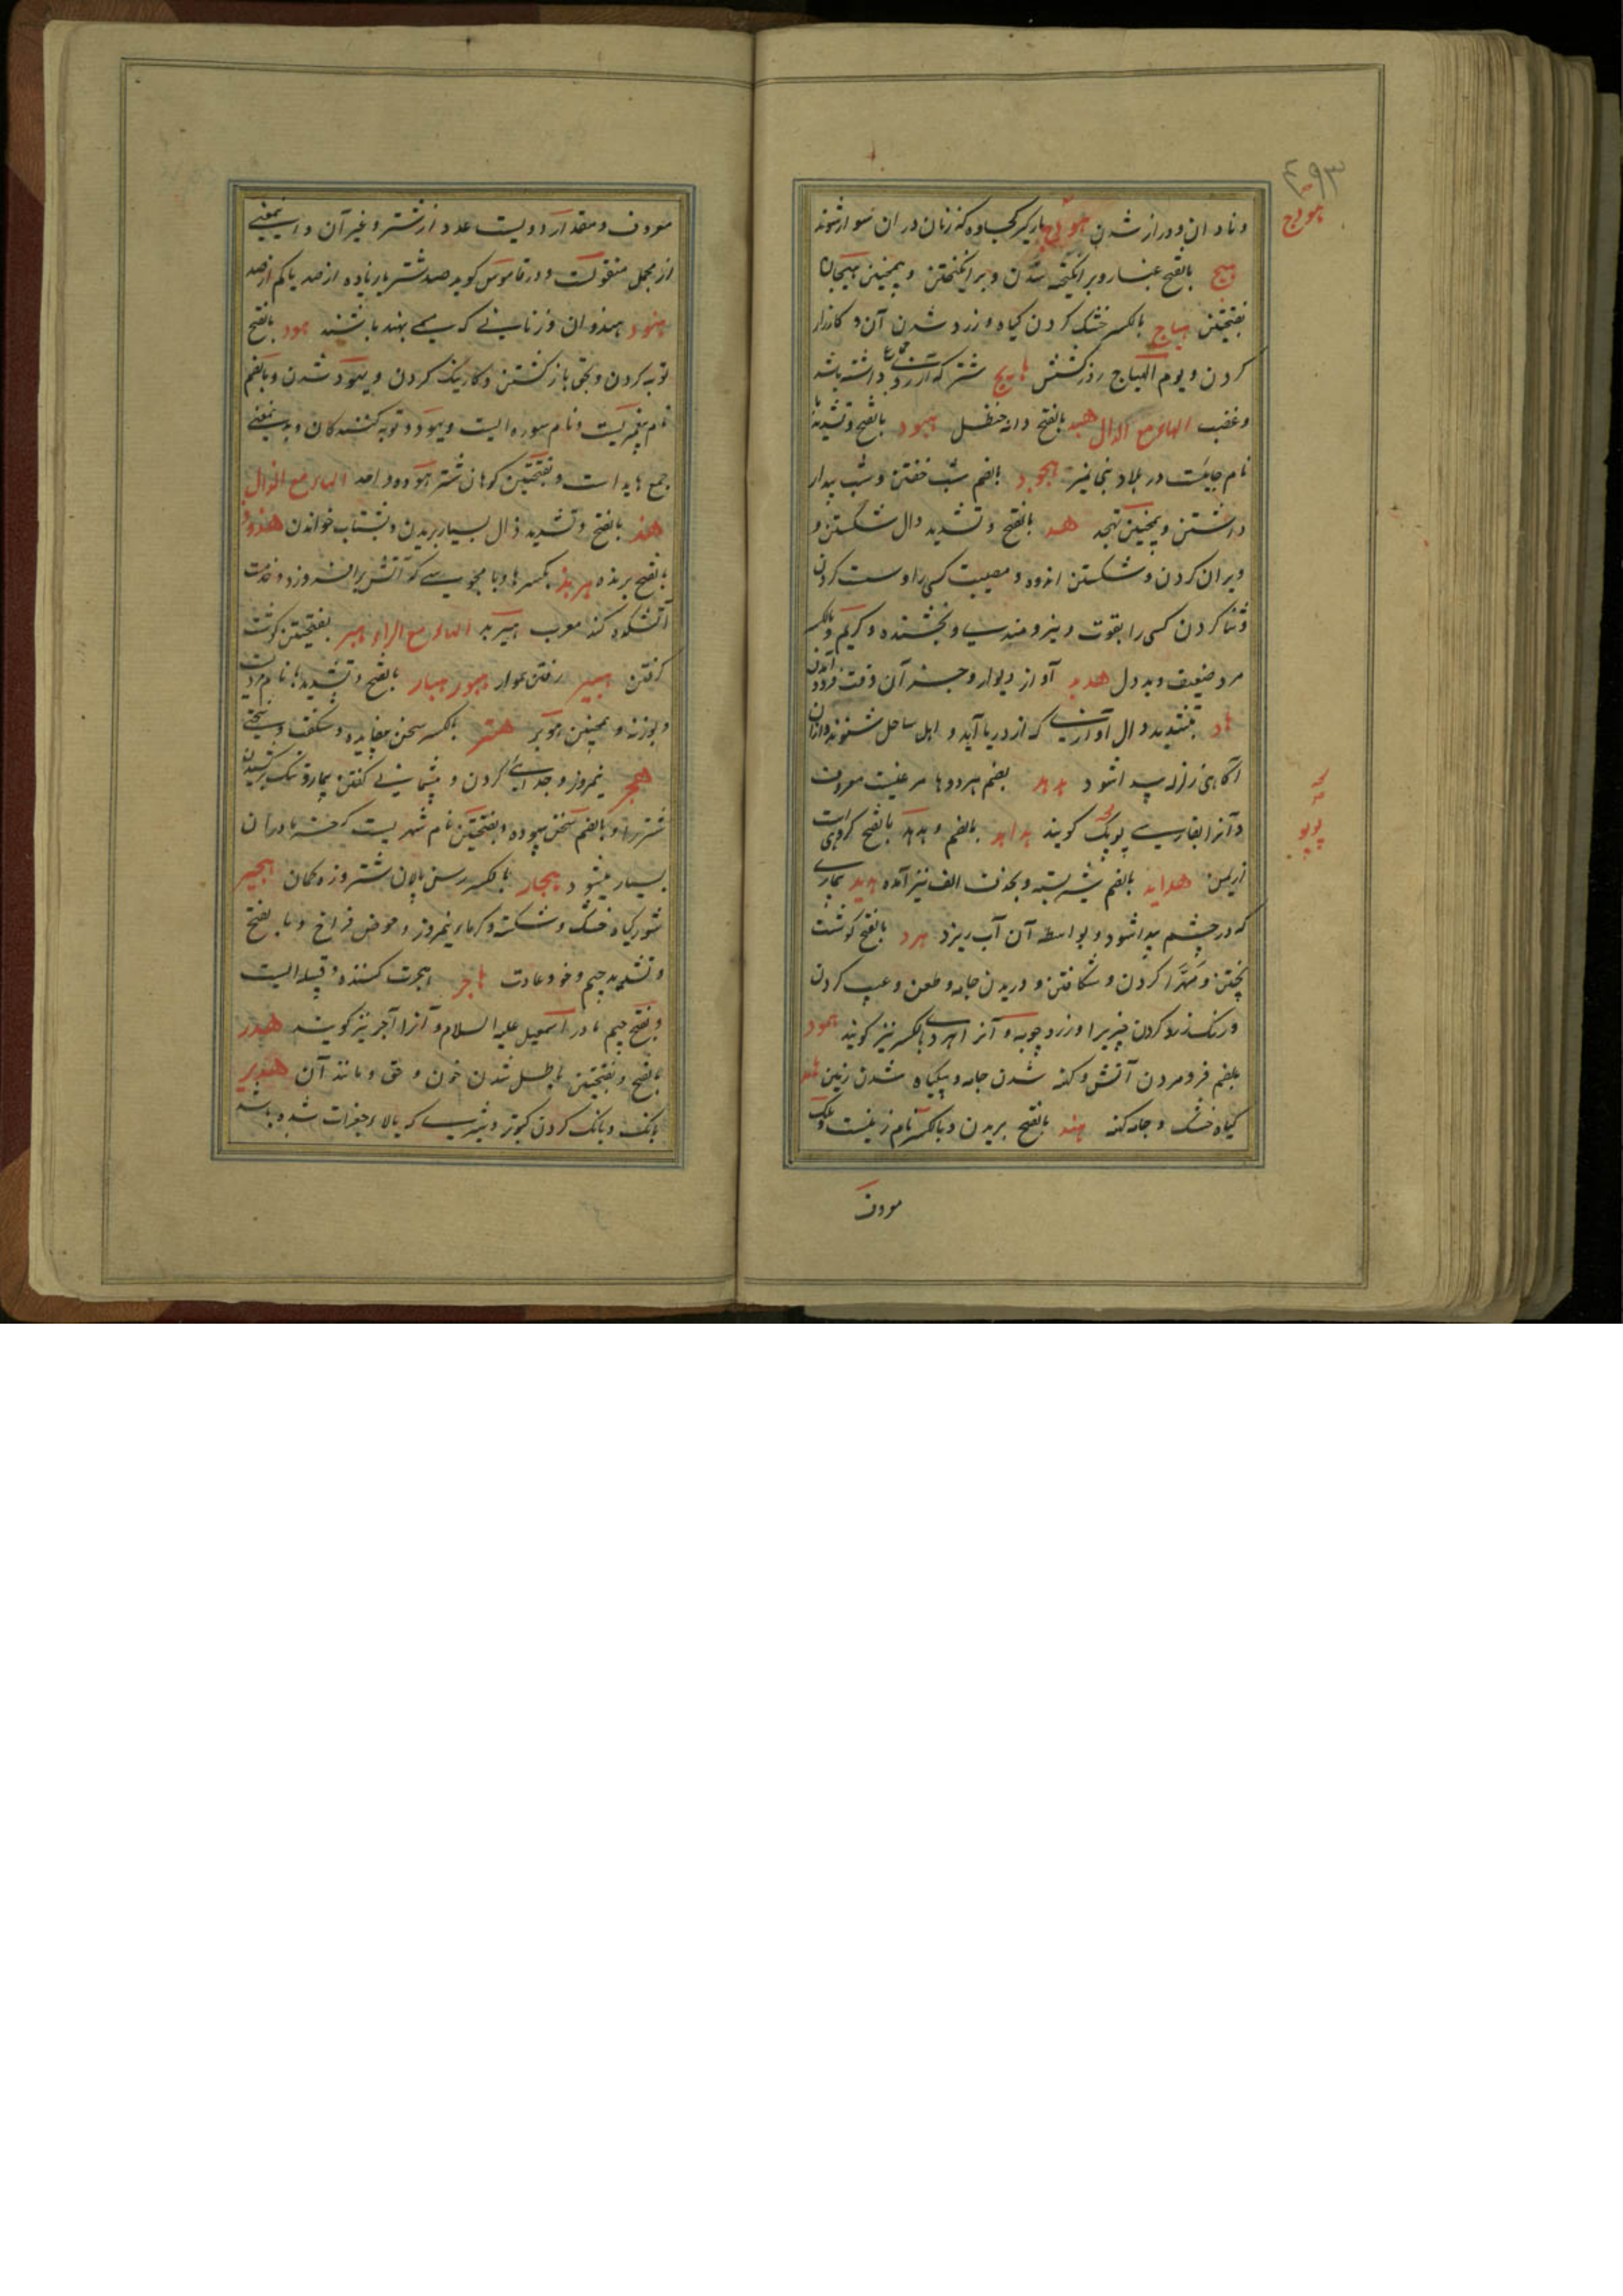 ۴۹۳
هودج
و نادان و دراز شدن هودج بارگیر کجاوه که زنان در ان سوار شوند
هیج بالفتح غبار و برانگیخته شدن و برانگیختن و همچنین هیجان
بفتحتین هیاج بالکسر خشک کردن گیاه و زرد شدن آن و کارزار
کردن و یوم الهیاج روز کشش هایج شتر که آرزوی جماع داشته باشد
و غضب الهاء مع الدال هبد بالفتح دانه حنظل هبود بالفتح و تشدید با
نام جاییست در بلاد بنی نمیر هجود بالضم شب خفتن و شب بیدار
داشتن و همچنین تهجد هد بالفتح و تشدید دال شکستن و
ویران کردن و شکستن اندوه و مصیبت کسی را و سست کردن
و ثنا کردن کسی را بقوت و نیرومندی و بخشنده و کریم و بالکسر
مرد ضعیف و بددل هدید آواز دیوار و جز آن وقت فرود آمدن
هاد بتشدید دال آوازی که از دریا آید و اهل ساحل شنوند و ازان
آگاهی زلزله پیدا شود هدهد بضم هر دو ها مرغیست معروف
و آنرا بفارسی پوپک گویند هداهد بالضم و هدهد بالفتح گروهی است
پوپو
ازیمن هداید بالضم شیر بسته و بحذف الف نیز آمده هدبد بیماری
که در چشم پیدا شود و بواسطه آن آب ریزد هرد بالفتح گوشت
پختن و مهرا کردن و شکافتن و دریدن جامه و طعن و عیب کردن
و رنگ زرد کردن چیزیرا و زردچوبه و آنرا هردی بالکسر نیز گویند همود
بالضم فرو مردن آتش و کهنه شدن جامه و بیگیاه شدن زمین هامد
گیاه خشک و جامه کهنه هند بالفتح بریدن و بالکسر نام زنیست و ملک
معروف
معروف و مقدار دویست عدد از شتر و غیر آن و این معنی
از مجمل منقولست و در قاموس گوید صد شتر یا زیاده از صد یا کم از صد
هنود هندوان و زنانی که مسمی بهند باشند هود بالفتح
توبه کردن و بحق بازگشتن و کار نیک کردن و یهود شدن و بالضم
نام پیغمبریست و نام سوره ایست و یهود و توبه کنندگان و بدین معنی
جمع هاید است و بفتحتین کوهان شتر هوده واحد الهاء مع الذال
هذ بالفتح و تشدید ذال بسیار بریدن و بشتاب خواندن هذوذ
بالفتح برنده هربذ بکسر ها و با مجوسی که آتش برافروزد و خدمت
آتشکده کند معرب هیربد الهاء مع الراء هبر بفتحتین گوشت
گرفتن هبیر رفتن هموار هبور هبار بالفتح و تشدید با نام مردیست
و بوزنه و همچنین هوبر هتر بالکسر سخن بیفایده و شگفت و سختی
هجر نیمروز و جدایی کردن و پشیمانی گفتن بیمار و تنگ برکشیدن
شتر را و بالضم سخن بیهوده و بفتحتین نام شهریست که خرما دران
بسیار میشود هجار بالکسر رسن پالان شتر و زه کمان هجیر
شوره گیاه خشک و شکسته و گرمای نیمروز و حوض فراخ و با بفتح
و تشدید جیم و خو و عادت هاجر هجرت کننده و قبیله ایست
و بفتح جیم مادر اسمعیل علیه السلام و آنرا آجر نیز گویند هدر
بالفتح و بفتحتین باطل شدن خون و حق و مانند آن هدیر
بانگ و بانگ کردن کبوتر و شیری که بالاء جغرات شده باشد